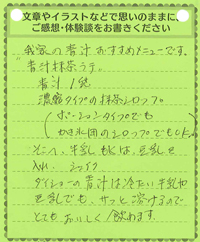 文章やイラストなどで思いのままに、
ご感想・体験談をお書きください
我家の青汁おすすめメニューです。
"青汁抹茶ラテ"
青汁 1袋
濃縮タイプの抹茶シロップ
(ポーションタイプでも
かき氷用のシロップでもOK)
そこへ、牛乳もしくは、豆乳を
入れ、シェイク
ダイショーの青汁は冷たい牛乳や
豆乳でも、サッと溶けるので
とてもおいしく飲めます。